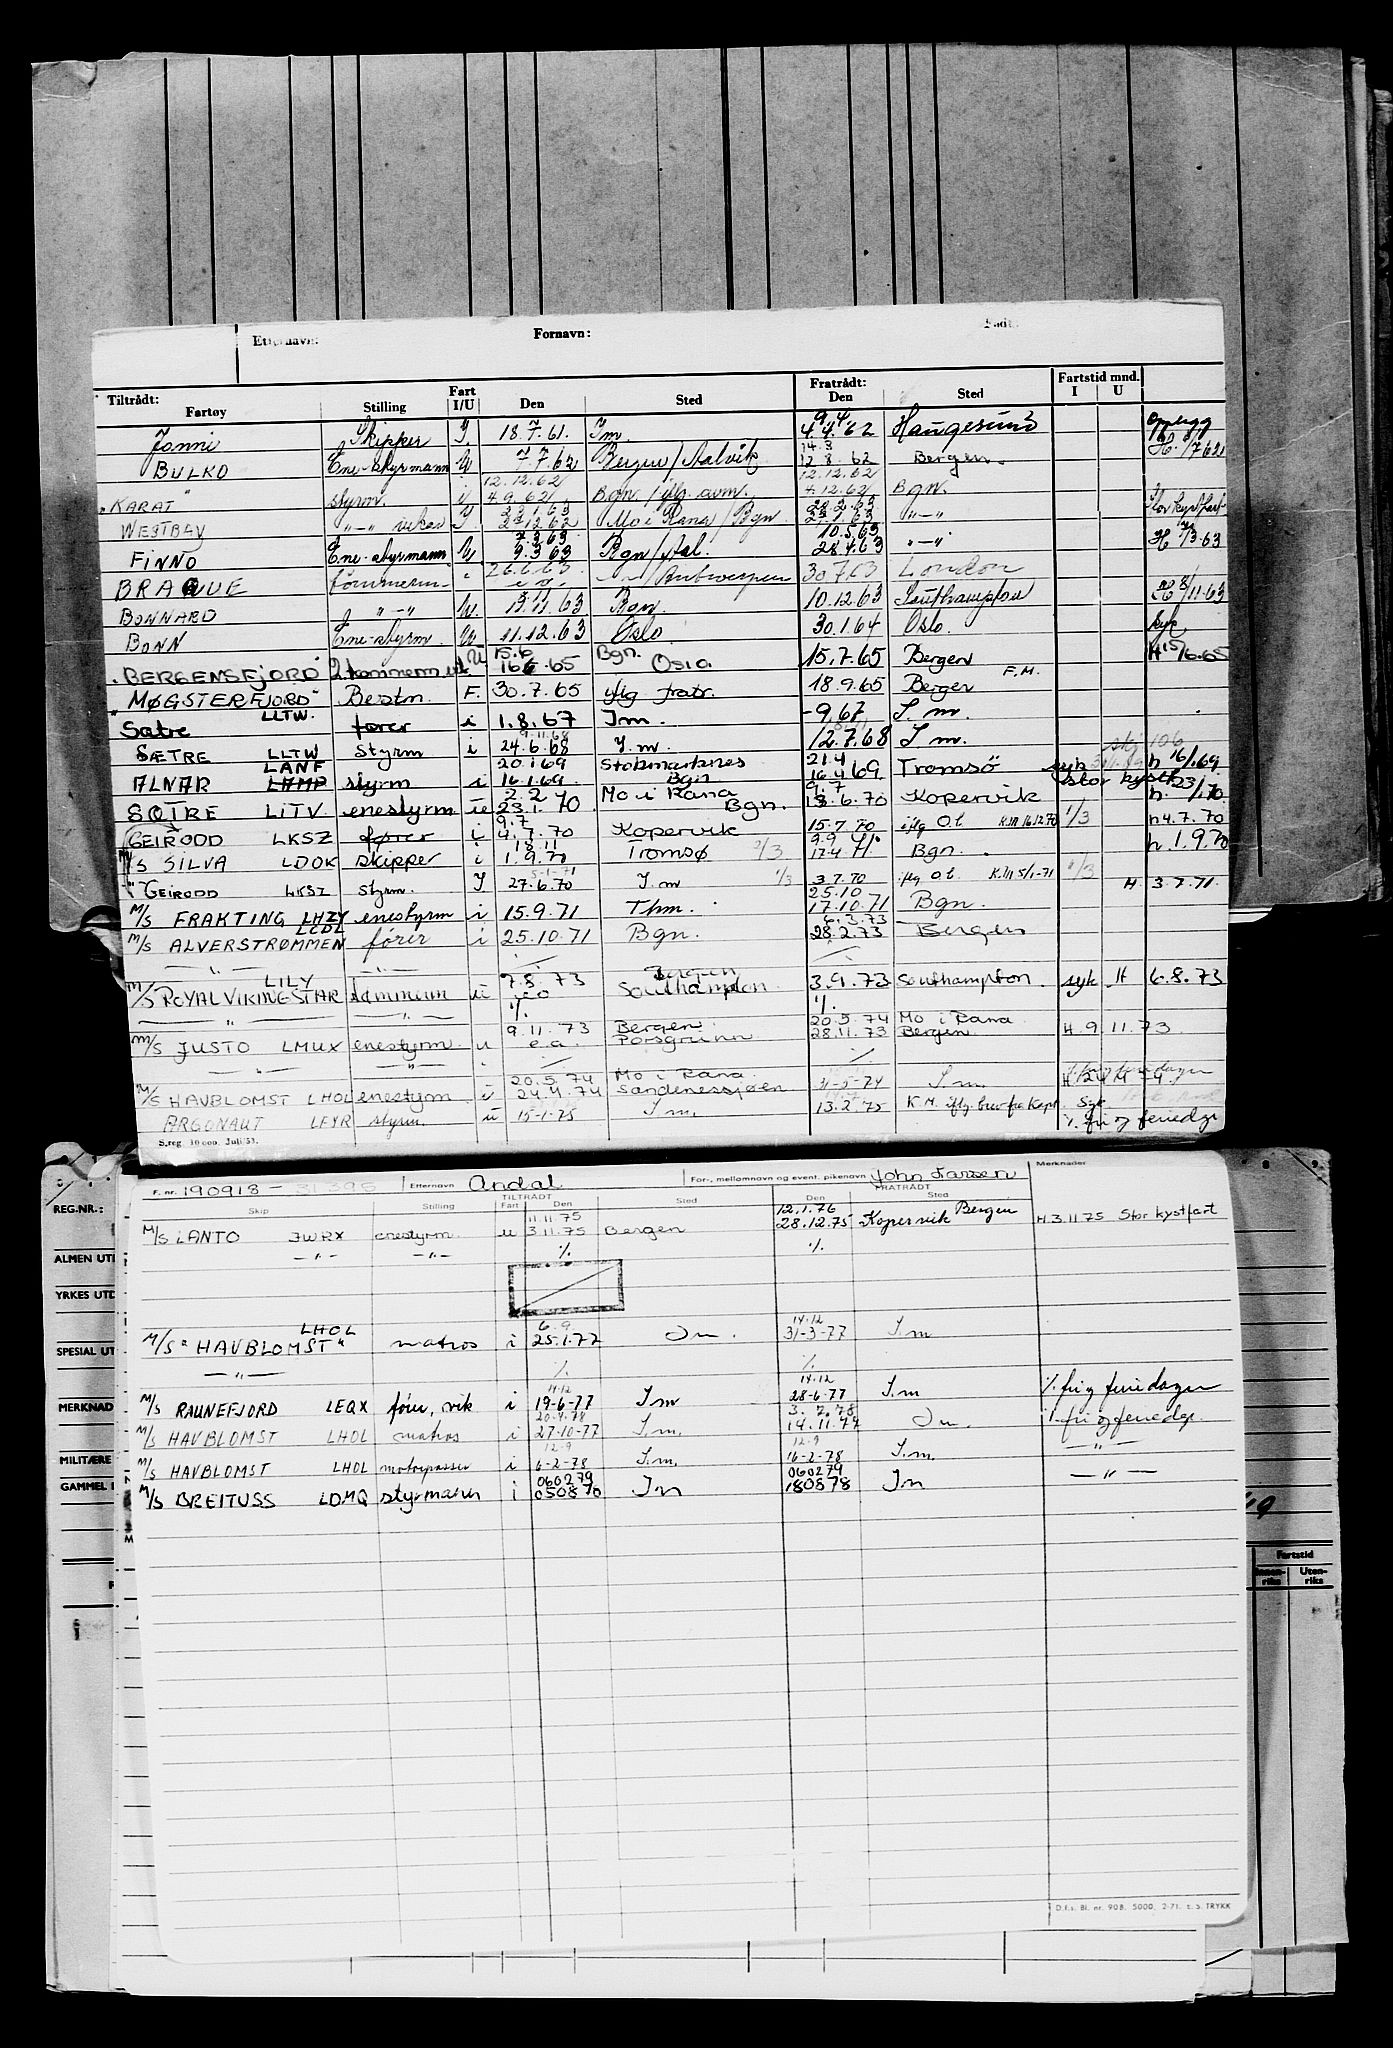 Etternavn: Fornavn: Født:
Tiltrådt: Fratrådt: Fartstid mnd.
Fartøy Stilling Fart I/U Den Sted Den Sted I U
Jonni Skipper I. 18.7.61. I m. 9.4 4.4.62 Haugesund Opplegg
BULKO Ene-styrmann U 7.7.62 Bergen/Aalvik 14.8 12.8.62 Bergen. H. 6/7 62
12.12.62 12.12.62
"KARAT" styrm. i 4.9.62 Bgn. 4.12.62 Bgn.
WESTBAY "-" I. 23.12.62 Mo i Rana/Bgn. "-" Stor kystfart
FINNO Ene-styrmann U 7.3.63 9.3 63 Bgn/ 10.5.63 28.4.63 "-" H 7/3.63
BRAQUE i 26.6.63 "/Antwerpen 30.7.63 London
BONNARD "-" U. 13.11.63 Bgn. 10.12.63 Southampton H 8/11.63
BONN Ene-styrm. U. 11.12.63 Oslo. 30.1.64 Oslo. syk
"BERGENSFJORD" U 15.6 16.6.65 Bgn. Oslo. 15.7.65 Bergen H 15/6.65
"MØGSTERFJORD" Bestm. F. 30.7.65 iflg fratr. 18.9.65 Bergen F.M.
Satre LLTW. fører i 1.8.67 I m. -9.67 I. m.
SÆTRE LLTW styrm i 9.11.68 24.6.68 I. m. 12.7.68 I m.
ALNAR LANF LAMP styrm i 20.1.69 16.1.69. Stokmarknes Bgn 21.4 16.4.69 Tromsø syk h 16/1.69
SØTRE LITV. enestyrm u 2.2 23.1.70 Mo i Rana Bgn. 9.7 13.6.70 Kopervik Stor kystf. h. 23/1.70
GEIRODD LKSZ fører i 9.7 4.7.70 Kopervik 15.7.70 iflg O.l. K.M 16.12.70 1/3 h 4.7.70
M/S SILVA LDOK skipper i 18.11 1.9.70 Tromsø 2/3 9.9 17.4.71 Bgn. h 1.9.70
" GEIRODD LKSZ styrm. I 5-1-71 27.6.70 I. m 1/3 3.7.70 iflg O.l. K.M 5/1-71 2/3 H. 3.7.71.
M/S FRAKTING LHZY enestyrm i 15.9.71 Thm. 25.10 17.10.71 Bgn.
M/S ALVERSTRØMMEN LCDL fører i 25.10.71 Bgn. 6.3.73 28.2.73 Bergen
— " — — " — ·/. ·/.
M/S ROYAL VIKING STAR LILY tømmerm u 7.8.73 e.o Bergen Southampton 3.9.73 Southampton syk H 6.8.73
— " — — " — ·/. ·/.
M/S JUSTO LMUX enestyrm. u 9.11.73 e.a. Bergen. Porsgrunn 20.5.74 28.11.73 Mo i Rana Bergen H. 9.11.73
— " — — " — ·/. ·/.
M/S HAVBLOMST LHOL enestyrm. u 20.5.74 24.4.74 Mo i Rana. Sandnessjøen 31-5-74 I m. H
ARGONAUT LFYR styrm. u 15-1-75 I m. 13.2.75 K.M. iflg. brev fra Kapt. Syk ·/. fri og feriedgr
S.reg. 10 000. Juli 53.
F. nr. 190918 - 31 395 Etternavn Andal For-, mellomnavn og event. pikenavn John Larsen Merknader
TILTRÅDT FRATRÅDT
Skip Stilling Fart Den Sted Den Sted
M/S LANTO JWRX enestyrm. u 11.11.75 3.11.75 Bergen 12.1.76 28.12.75 Kopervik Bergen H. 3.11 75 Stor kystfart
— " — — " — ·/. ·/.
M/S "HAVBLOMST" LHOL matros i 6.9. 25.1.77 I m. 14.12 31-3-77 I. m
— " — ·/. ·/.
M/S RAUNEFJORD LEQX fører, vik i 14.12 19-6-77 I m 14.12 28-6-77 I. m ·/. fri og feriedager
M/S HAVBLOMST LHOL matros i 20.4.78 27-10-77 I. m. 3.7.78 19.11.77 I m. ·/. fri og feriedgr.
M/S HAVBLOMST LHOL motorpasser i 12.9 6-2-78 I. m. 12.9 16-2-78 I. m. — " —
M/S BREITUSS LDMQ styrmann i 060279 050870 I m 060279 180878 I m — " —
D.f.s. Bl. nr. 908. 5000. 2-71. E. S. TRYKK
REG.NR.:
ALMEN UTD
YRKES UTD
SPESIAL UT
MERKNAD
MILITÆRE
GAMMEL
Fartstid
Innen-riks Uten-riks